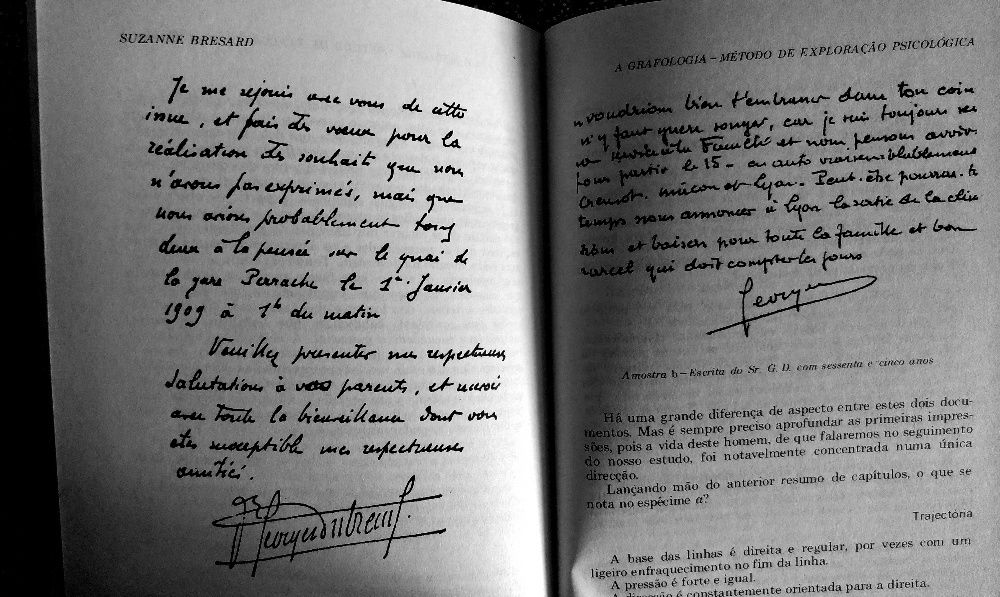 SUZANNE BRESARD
Je me rejouis avec vous de cette
issue, et fais des vœux pour la
réalisation des souhaits que nous
n'avons pas exprimés, mais que
nous avions probablement tous
deux à la pensée sur le quai de
la gare Perrache le 1er Janvier
1909 à 1h du matin
Veuillez presenter mes respectueuses
salutations à vos parents, et
avec toute la bienveillance dont vous
etes susceptible mes respectueuses
amitiés.
Georges Dubreuil
A GRAFOLOGIA – MÉTODO DE EXPLORAÇÃO PSICOLÓGICA
voudrions bien t'embrasser dans ton coin
n'y faut guere songer, car je suis toujours
à la Faculté et nous pensons
pour partir le 15 – en auto vraisemblablement
Creusot. Mâcon et Lyon. Peut-être pourras-t
temps nous annoncer à Lyon la sortie de la clin
et baisers pour toute la famille et bon
arcel qui doit compter les jours
Georges
Amostra b – Escrita do Sr. G. D. com sessenta e cinco anos
Há uma grande diferença de aspecto entre estes dois docu-
mentos. Mas é sempre preciso aprofundar as primeiras impres-
sões, pois a vida deste homem, de que falaremos no seguimento
do nosso estudo, foi notavelmente concentrada numa única
direcção.
Lançando mão do anterior resumo de capítulos, o que se
nota no espécime a?
Trajectória
A base das linhas é direita e regular, por vezes com um
ligeiro enfraquecimento no fim da linha.
A pressão é forte e igual.
A direcção é constantemente orientada para a direita.